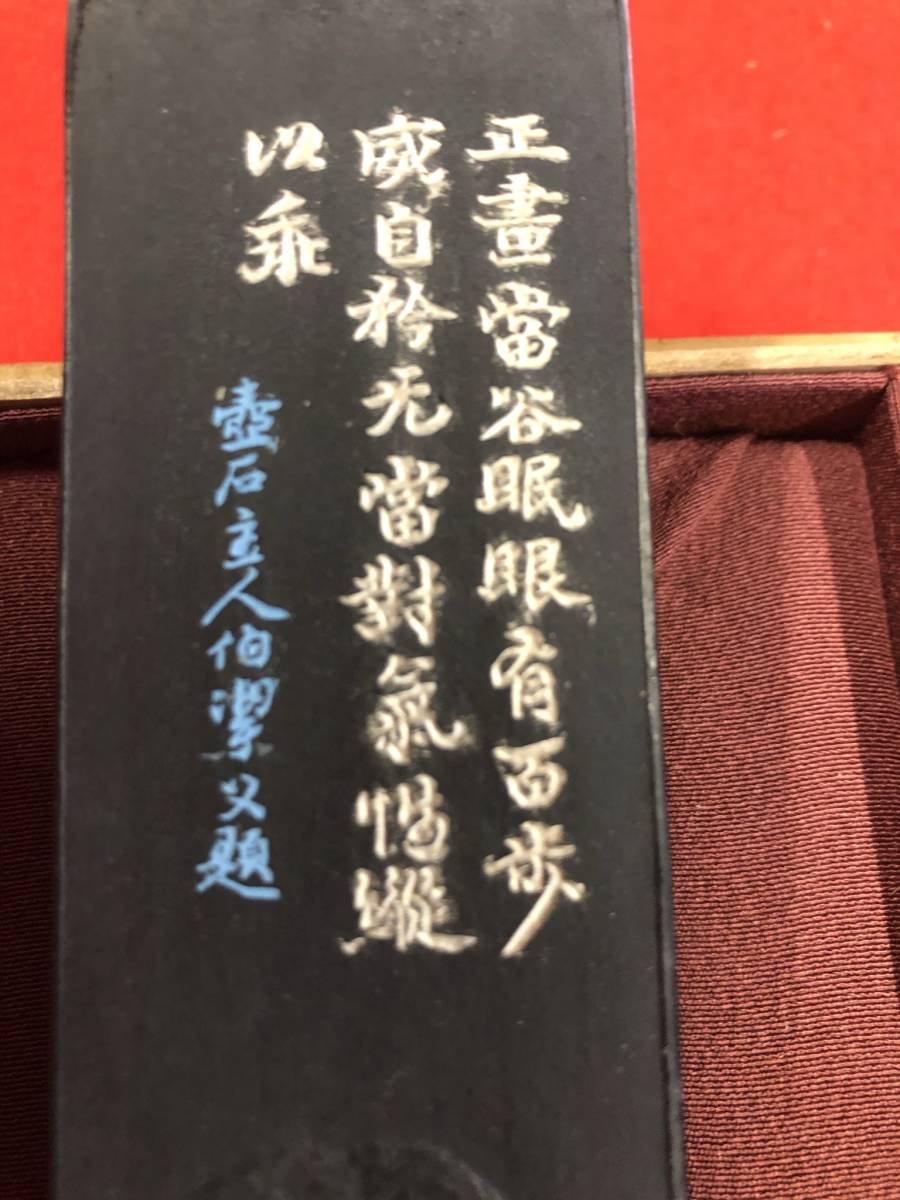 正畫當谷眠眼有百步
威自矜无當對氣縱
以乖
壺石主人伯潔父題